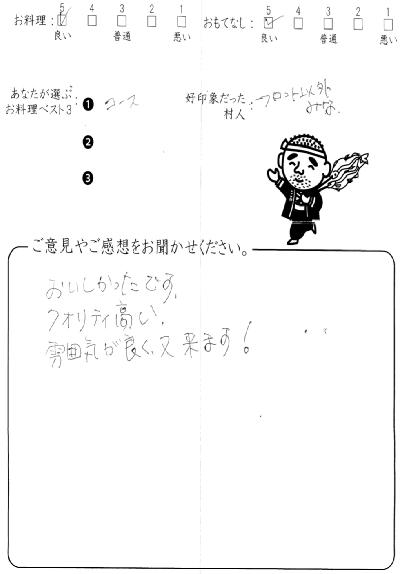 お料理: 5 4 3 2 1
良い 普通 悪い
おもてなし: 5 4 3 2 1
良い 普通 悪い
あなたが選ぶ
お料理ベスト3:
❶ コース
❷
❸
好印象だった
村人:
フロント以外
みな
ご意見やご感想をお聞かせください。
おいしかったです。
クオリティ高い。
雰囲気が良く、又来ます!